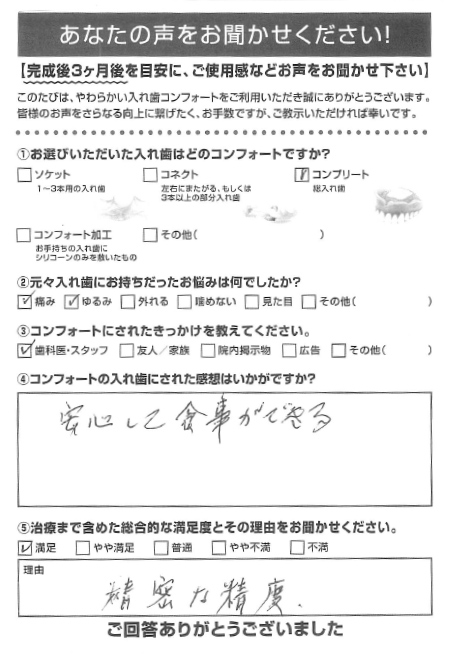 あなたの声をお聞かせください!
【完成後3ヶ月後を目安に、ご使用感などお声をお聞かせ下さい】
このたびは、やわらかい入れ歯コンフォートをご利用いただき誠にありがとうございます。
皆様のお声をさらなる向上に繋げたく、お手数ですが、ご教示いただければ幸いです。
①お選びいただいた入れ歯はどのコンフォートですか?
□ソケット □コネクト ☑コンプリート
1〜3本用の入れ歯 左右にまたがる、もしくは 総入れ歯
3本以上の部分入れ歯
□コンフォート加工 □その他( )
お手持ちの入れ歯に
シリコーンのみを敷いたもの
②元々入れ歯にお持ちだったお悩みは何でしたか?
☑痛み ☑ゆるみ □外れる □噛めない □見た目 □その他( )
③コンフォートにされたきっかけを教えてください。
☑歯科医・スタッフ □友人/家族 □院内掲示物 □広告 □その他( )
④コンフォートの入れ歯にされた感想はいかがですか?
安心して食事ができる
⑤治療まで含めた総合的な満足度とその理由をお聞かせください。
☑満足 □やや満足 □普通 □やや不満 □不満
理由
精密な精度.
ご回答ありがとうございました